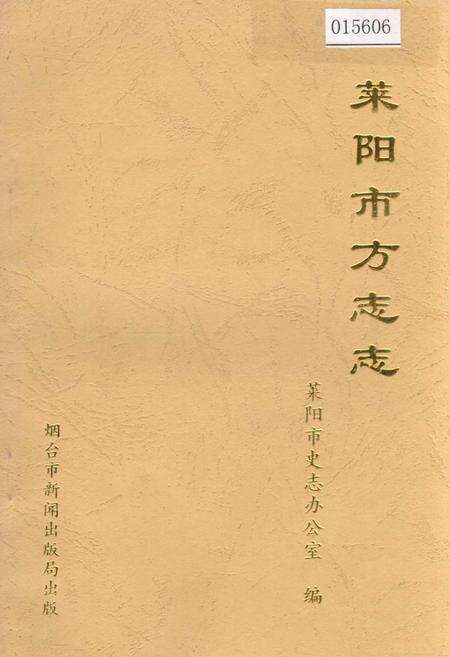 015606
莱阳市方志志
莱阳市史志办公室 编
烟台市新闻出版局出版